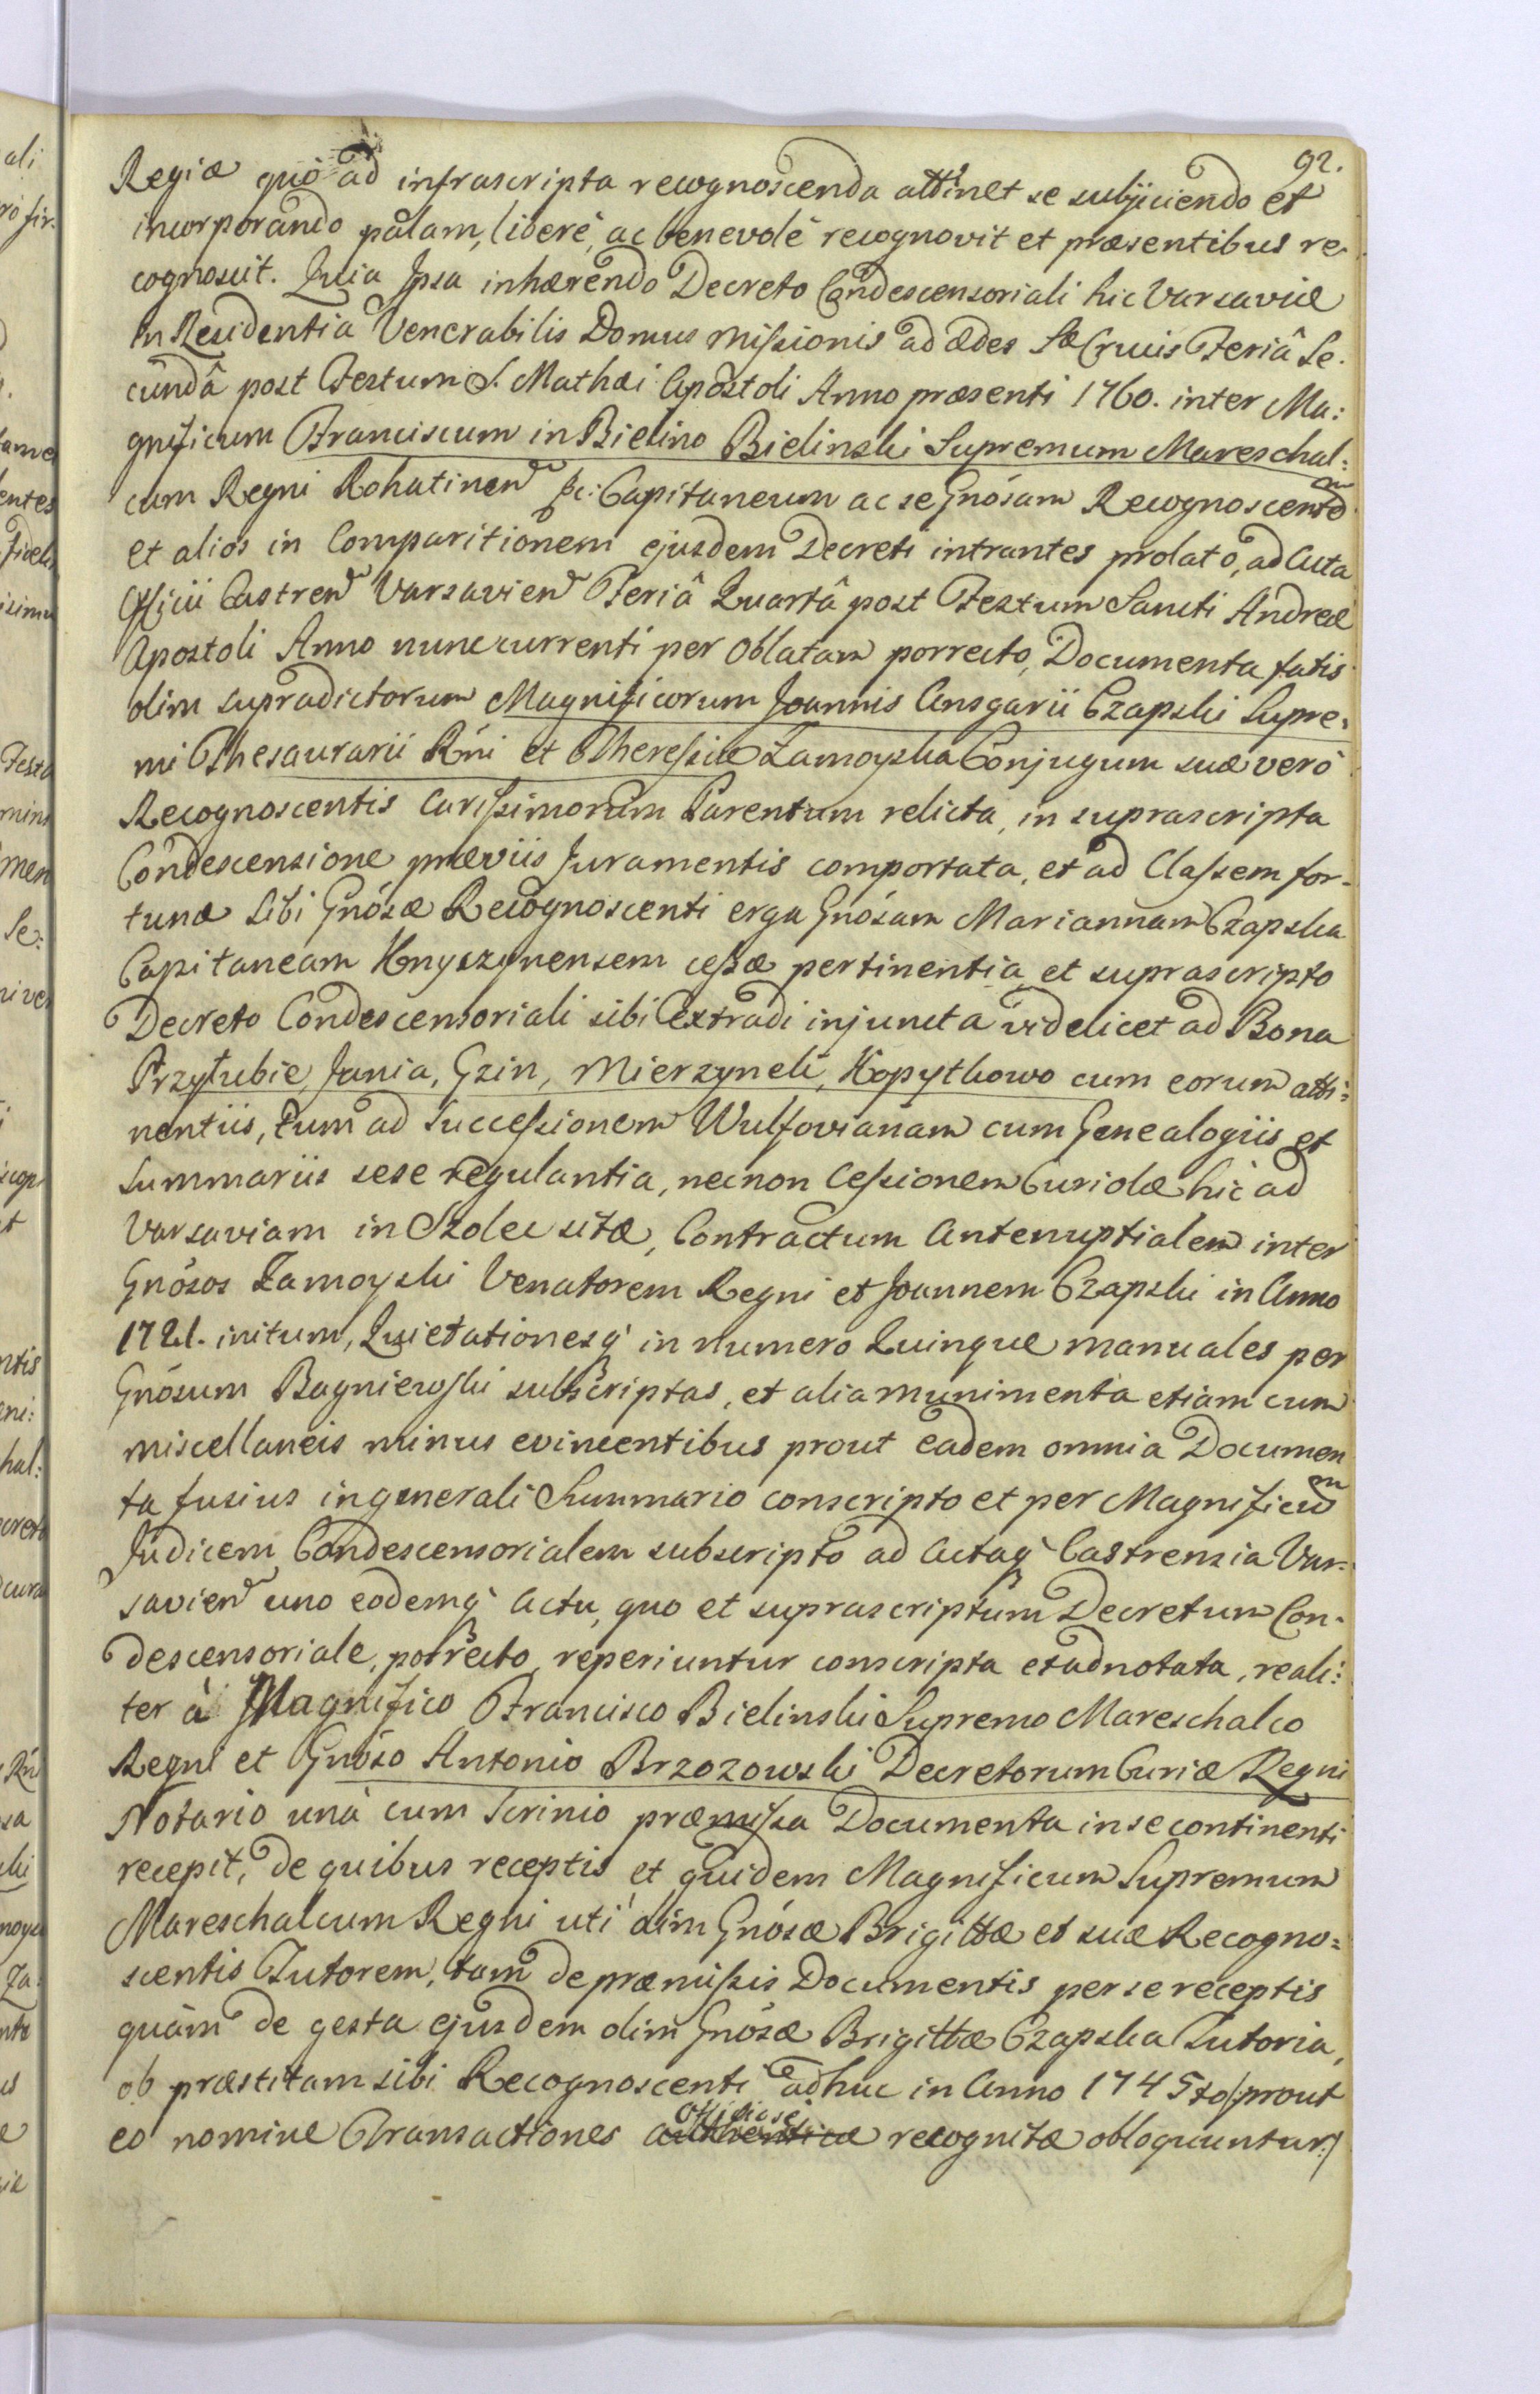 92.
Regiæ quò ad infrascripta recognoscenda attinet se subjiciendo et
incorporando palam, liberè, ac benevolè recognovit et præsentibus re-
cognoscit. Quia Ipsa inhærendo Decreto Condescensoriali hic Varsaviæ
in Residentia Venerabilis Domus Missionis ad Ædes Sæ Crucis Feriâ Se-
cundâ post Festum S. Mathæi Apostoli Anno præsenti 1760. inter Ma:
gnificum Franciscum in Bielino Bielinski Supremum Mareschal:
cum Regni Rohatinen &c: Capitaneum ac se Gnósam Recognoscentem
et alios in Comparitionem ejusdem Decreti intrantes prolato, ad Acta
Officii Castren Varsavien Feriâ Quartâ post Festum Sancti Andreæ
Apostoli Anno nunc currenti per Oblatam porrecto, Documenta fatis
olim supradictorum Magnificorum Joannis Ansgarii Czapski Supre:
mi Thesaurarii Rńi et Theressiæ Zamoyska Conjugum suæ verò
Recognoscentis Carissimorum Parentum relicta, in suprascripta
Condescensione præviis Juramentis comportata, et ad Classem for-
tunæ sibi Gnósæ Recognoscenti erga Gnósam Mariannam Czapska
Capitaneam Knyszynensem cessæ pertinentia et suprascripto
Decreto Condescensoriali sibi extradi injuncta videlicet ad Bona
Przyłubie, Jania, Gzin, Mierzynek, Kopytkowo cum eorum atti:
nentiis, tum ad Successionem Wulfovianam cum Genealogiis et
Summariis sese regulantia, necnon Cessionem Curiolæ hic ad
Varsaviam in Szolec sitæ, Contractum Antenuptialem inter
Gnósos Zamoyski Venatorem Regni et Joannem Czapski in Anno
1721. initum, Quietationesq̀ in numero Quinque manuales per
Gnósum Bagniewski subscriptas, et alia munimenta etiam cum
miscellaneis minus evincentibus prout eadem omnia Documen
ta fusius in generali Summario conscripto et per Magnificum
Judicem Condescensorialem subscripto ad Actaq̀ Castrensia Var-
savien uno eodemq̀ Actu, quo et suprascriptum Decretum Con-
descensoriale, porrecto, reperiuntur conscripta et adnotata, reali:
ter à Magnifico Francisco Bielinski Supremo Mareschalco
Regni et Gnóso Antonio Brzozowski Decretorum Curiæ Regni
Notario unà cum Scrinio præmissa Documenta in se continenti
recepit, de quibus receptis et quidem Magnificum Supremum
Mareschalcum Regni uti olim Gnósæ Brigittæ et suæ Recogno=
scentis Tutorem, tam de præmissis Documentis per se receptis
quàm de gesta ejusdem olim Gnósæ Brigittæ Czapska Tutoria,
ob præstitam sibi Recognoscenti adhuc in Anno 1745to /:prout
eo nomine Transactiones authenticæ officiosè recognitæ obloquuntur:/